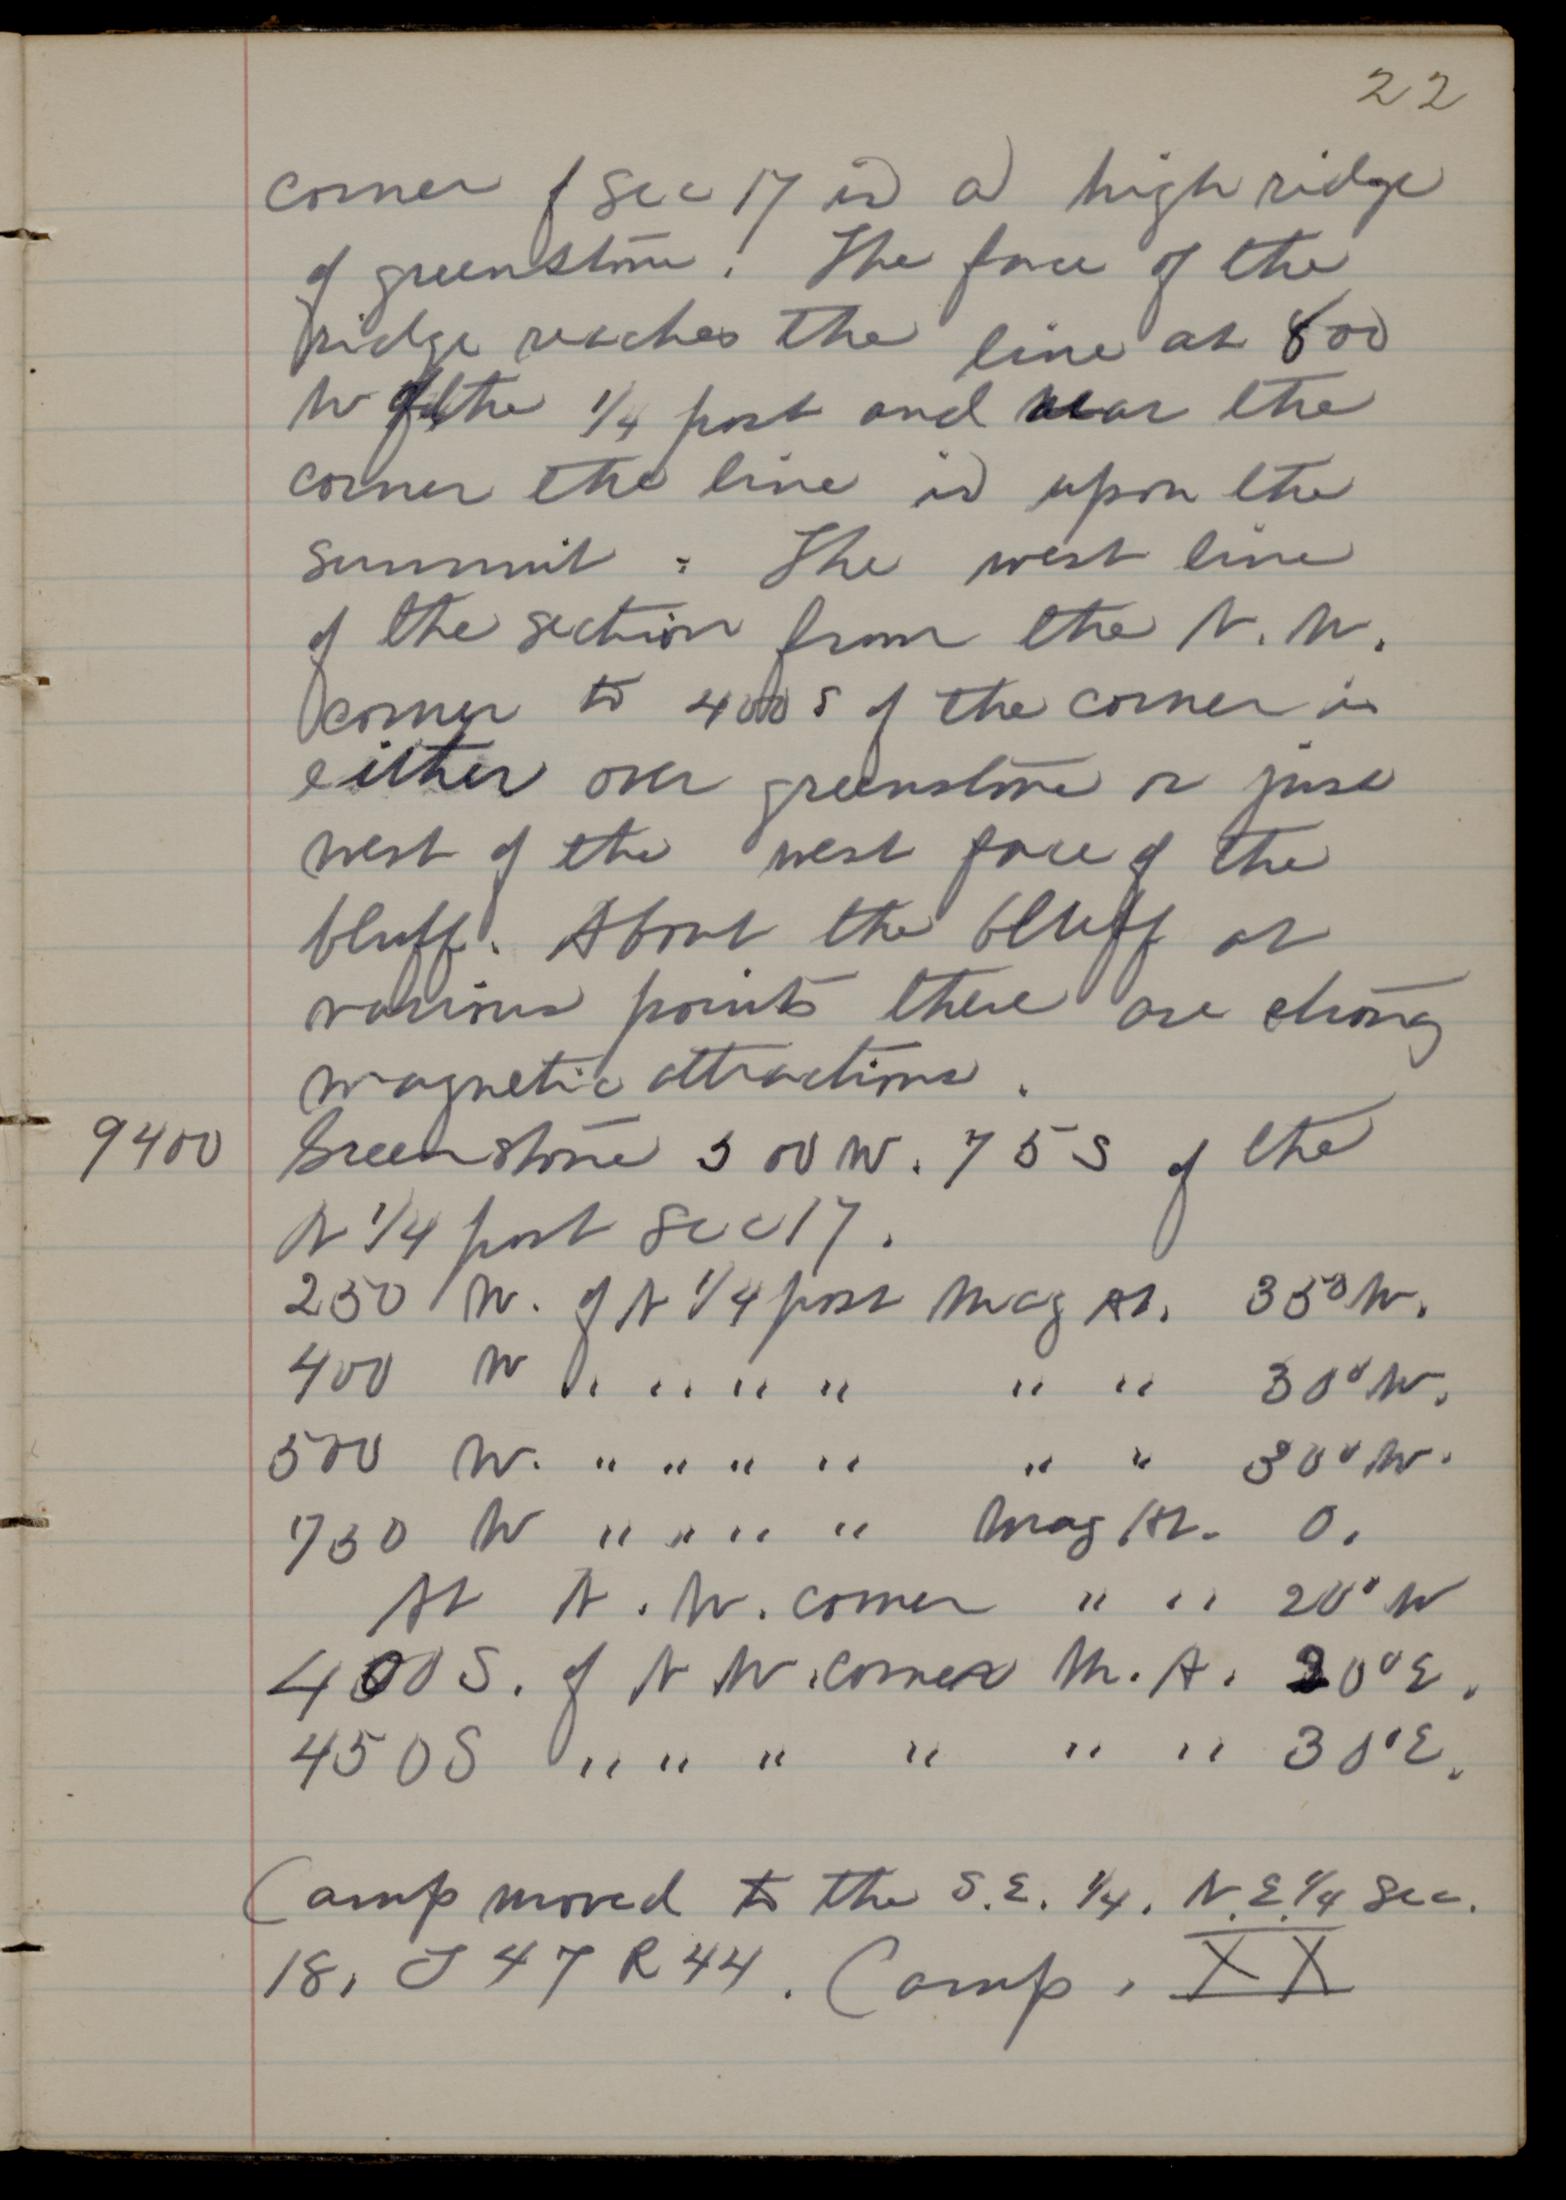 22
corner of Sec 17 is a high ridge
of greenstone. The face of the
ridge reaches the line at 800
W of the 1/4 post and near the
corner the line is upon the
summit. The west line
of the section from the N. W.
corner to 400 S of the corner is
either over greenstone or just
west of the west face of the
bluff. About the bluff at
various points there are strong
magnetic attractions.
9400 Greenstone 500 W. 75 S of the
N 1/4 post Sec 17.
250 W. of N 1/4 post Mag At. 35° W.
400 W " " " " " " 30° W.
500 W. " " " " " " 30° W.
750 W " " " " Mag At. 0.
At N. W. corner " " 20° W
400 S. of N W. corner M. A. 20° E.
450 S " " " " " " 30° E.
Camp moved to the S. E. 1/4. N. E. 1/4 Sec.
18, T 47 R 44. Camp. XX